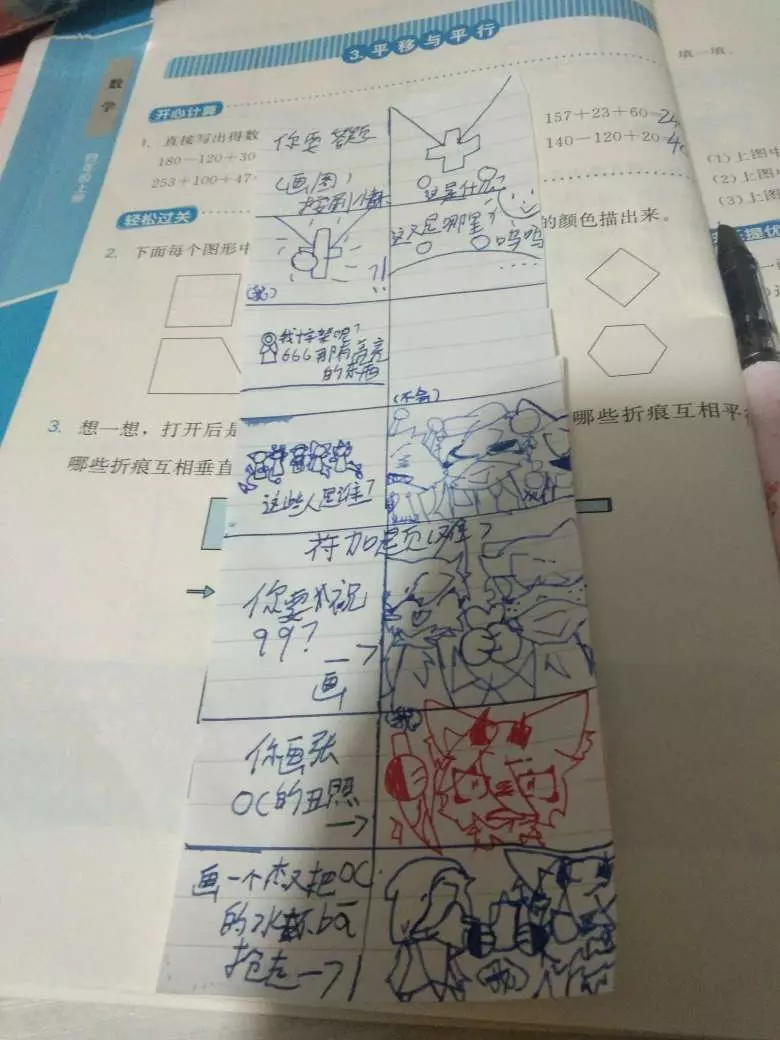 3.平移与平行
数学
四年级上册
填一填.
开心计算
1. 直接写出得数
180－120＋30
253＋100＋47
157＋23＋60＝24
140－120＋20＝4
(1)上图中
(2)上图
(3)上图
轻松过关
提优
2. 下面每个图形中
的颜色描出来。
3. 想一想，打开后是
哪些折痕互相平行
哪些折痕互相垂直
你要答题
(画图)
这是什么?
这又是哪里?
呜呜
....
!!
我十字架呢?
666 那有高亮
的东西
(不会)
这些人是谁?
你要
99?
画
你画张
OC的丑照
画一个
把OC
的水杯bā
抢走